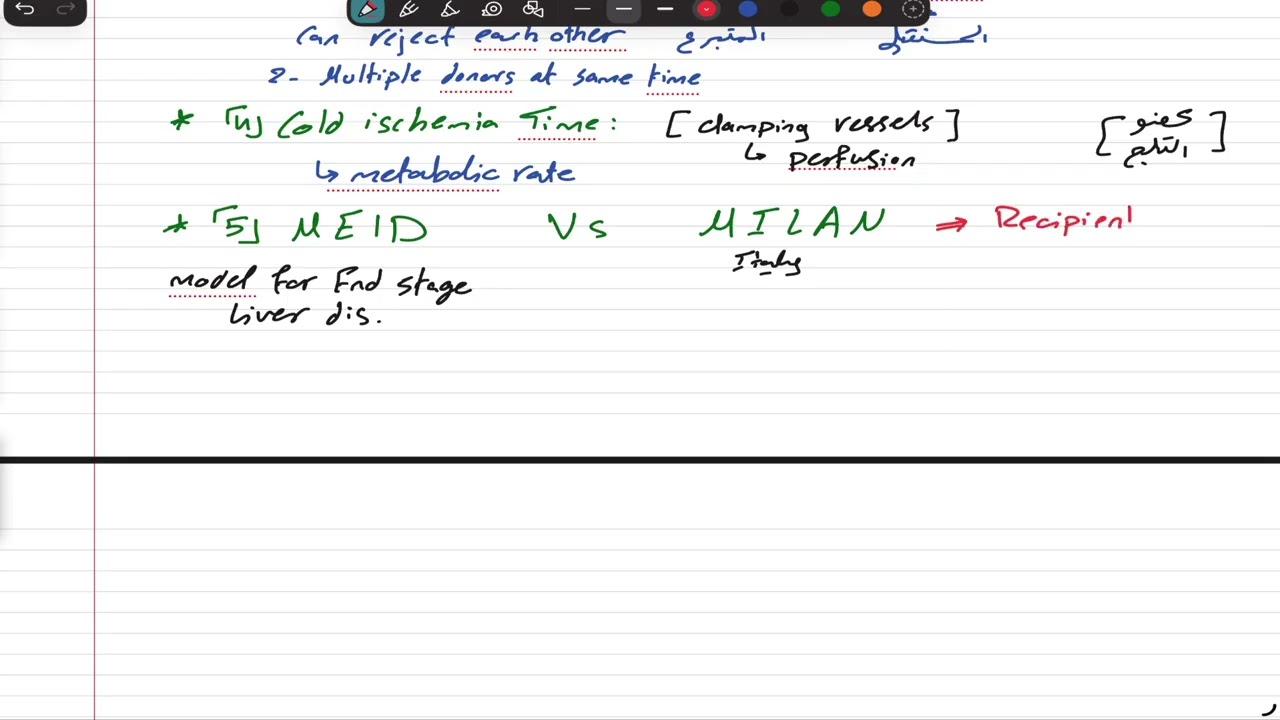 Can reject each other المتبرع المستقبل
2- Multiple donors at same time
* [4] Cold ischemia Time: [clamping vessels]
↳ perfusion
↳ metabolic rate
التلج
* [5] MElD Vs MILAN ⇒ Recipient
Italy
model for End stage
Liver dis.